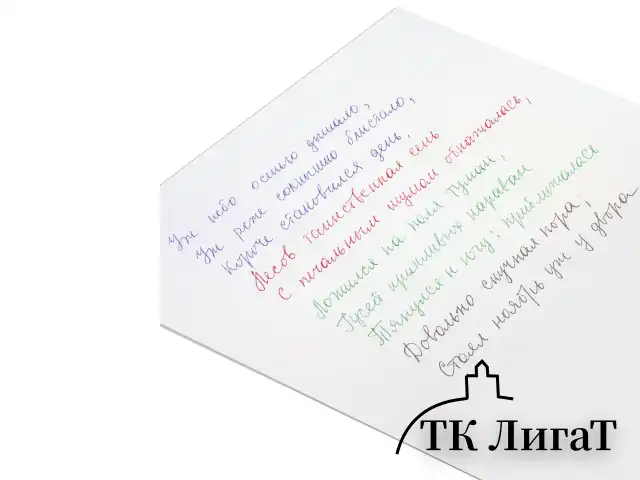 Уж небо осенью дышало,
Уж реже солнышко блистало,
Короче становился день,
Лесов таинственная сень
С печальным шумом обнажалась,
Ложился на поля туман,
Гусей крикливых караван
Тянулся к югу: приближалась
Довольно скучная пора;
Стоял ноябрь уж у двора
ТК ЛигаТ